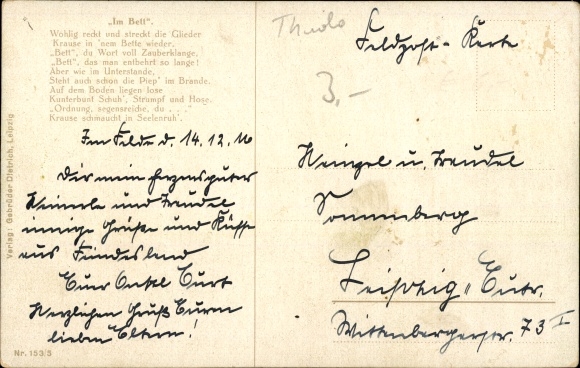 „Im Bett“.
Wohlig reckt und streckt die Glieder
Krause in 'nem Bette wieder.
„Bett“, du Wort voll Zauberklange,
„Bett“, das man entbehrt so lange!
Aber wie im Unterstande,
Steht auch schon die Piep' im Brande.
Auf dem Boden liegen lose
Kunterbunt Schuh', Strumpf und Hose.
„Ordnung, segensreiche, du . . .“
Krause schmaucht in Seelenruh'.
Im Felde d. 14.12.16
Dir mein herzensguter
und Treudel
innige Grüße und Küsse
aus Feindesland
Euer Onkel Curt
Herzlichen Gruß Eurn
lieben Eltern!
Verlag: Gebrüder Dietrich, Leipzig
Nr. 153/5
3.-
Feldpost-Karte
u. Treudel
Sonneberg
Leipzig Eutr.
Wittenbergerstr. 73 I